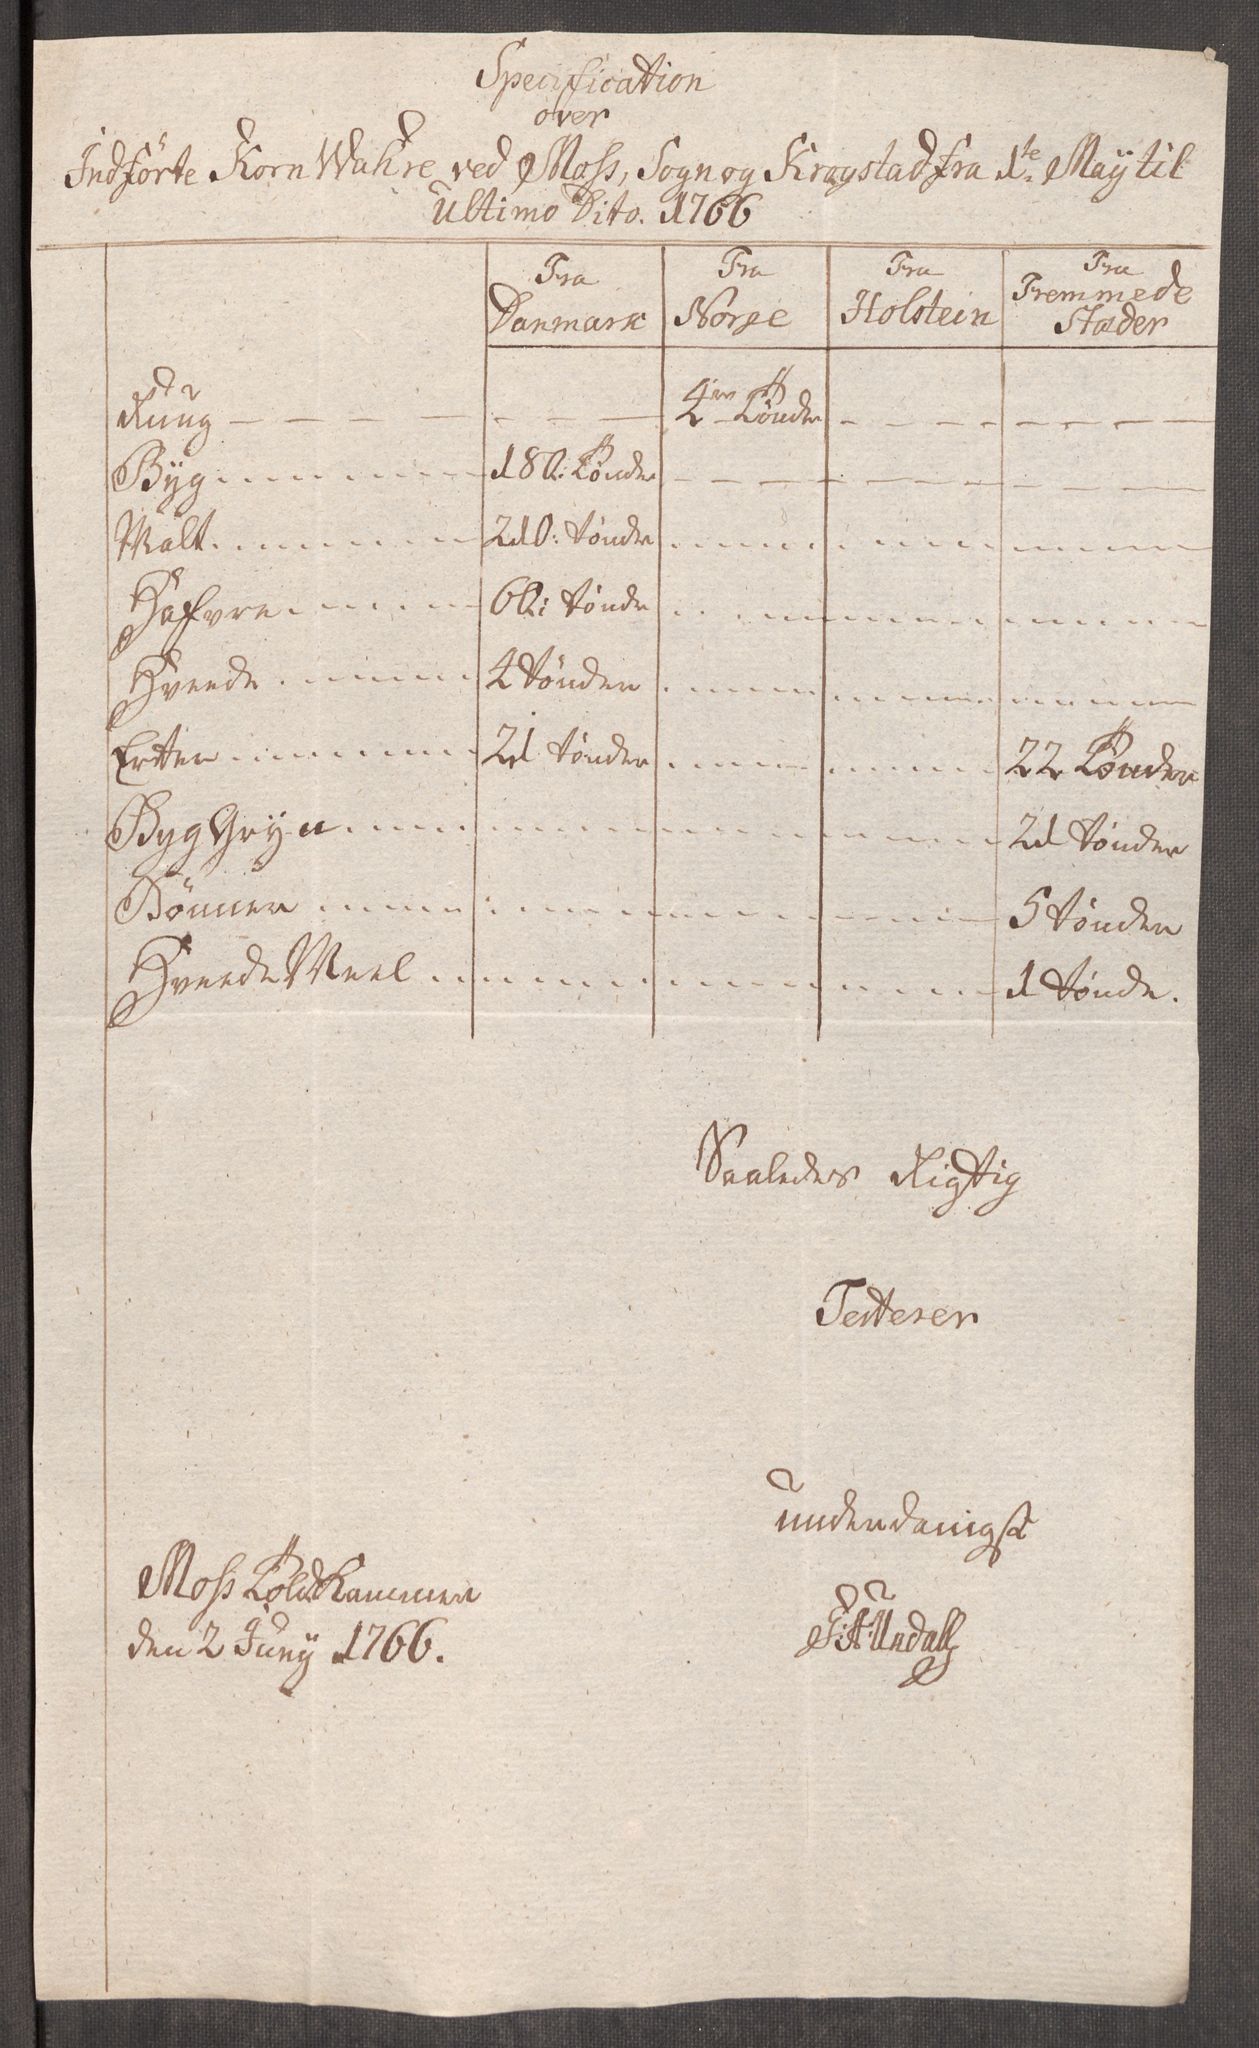 Specification
over
Indförte Korn Wahre ved Moss, Sogn og Kragstad fra 1te Maÿ til
Ultimo Dito. 1766
Fra Danmark Fra Norge Fra Holstein Fra Fremmede Stæder
Rüg 4 Tønder
Bÿg 180: Tønder
Malt 210: tønder
Hafvre 60: tønder
Hveede 4 tønder
Ertter 21 tønder 22 Tønder
Byg Grÿn 21 tønder
Bönner 5 tønder
Hveede Meel 1 tønde.
Saaledes Rigtig
Testerer
underdanigst
Moss Told Kammer
den 2 Junÿ 1766.
Undall